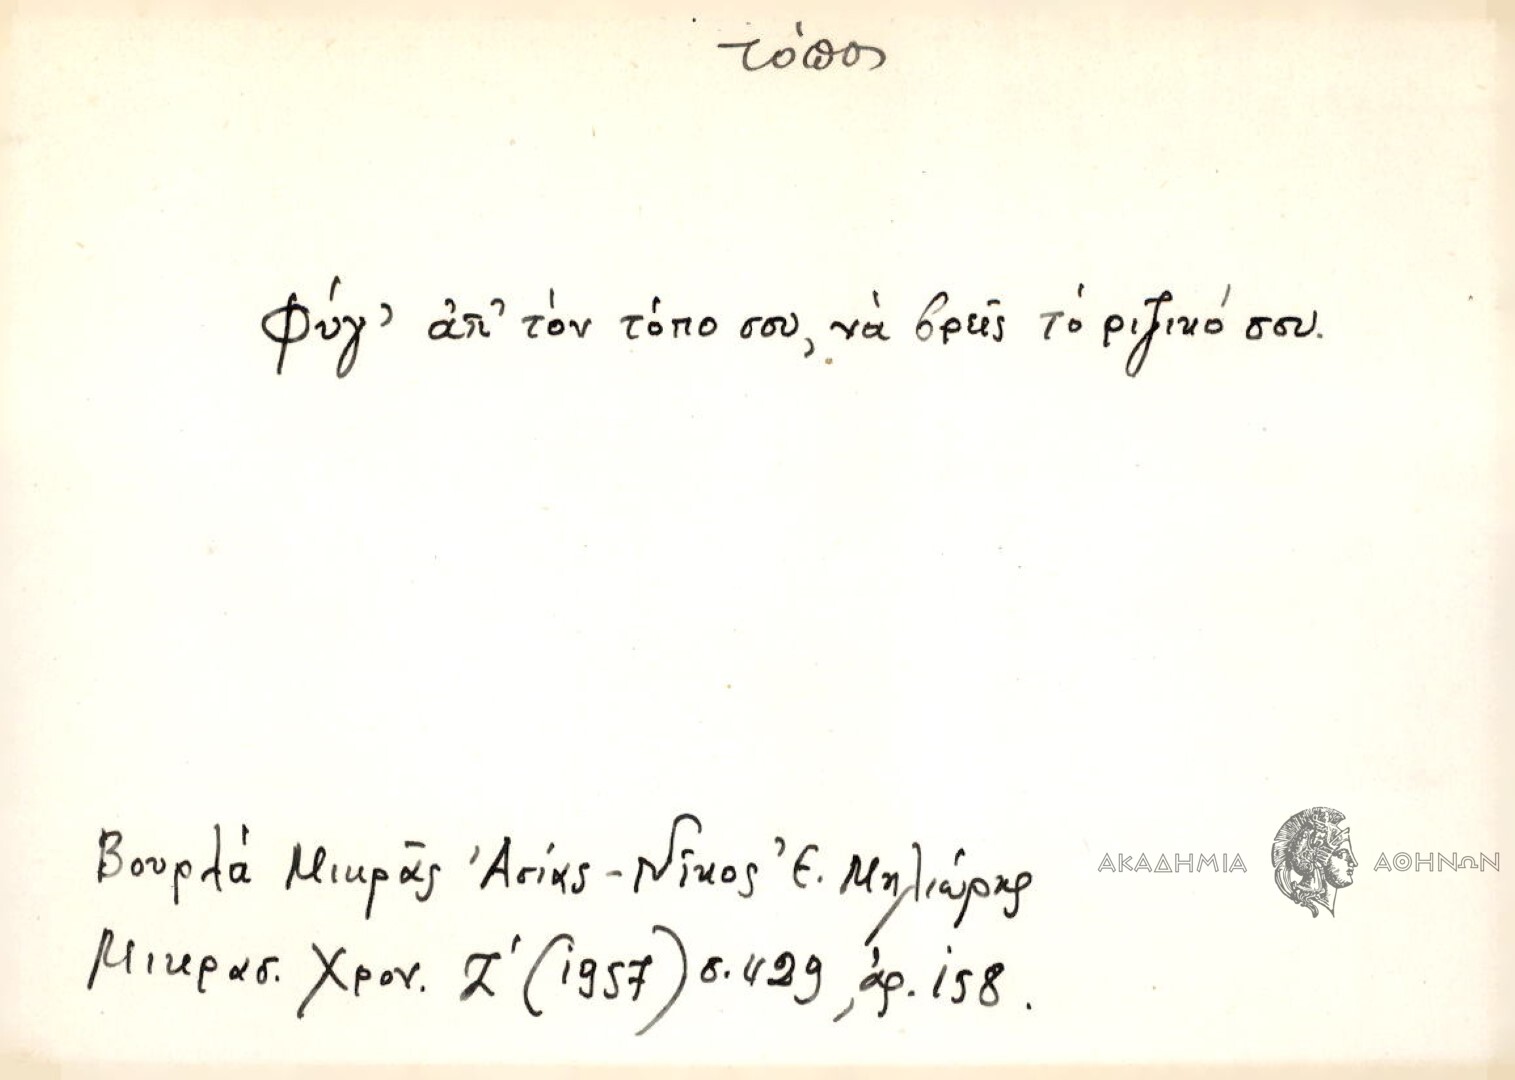 τόπος
Φύγ' ἀπ' τὸν τόπο σου, νὰ βρῇς τὸ ριζικό σου.
Βουρλά Μικρᾶς Ἀσίας - Νῖκος Ἐ. Μηλιώρης
ΑΚΑΔΗΜΙΑ ΑΘΗΝΩΝ
Μικρασ. Χρον. Ζ' (1957) σ. 429, ἀρ. 158.